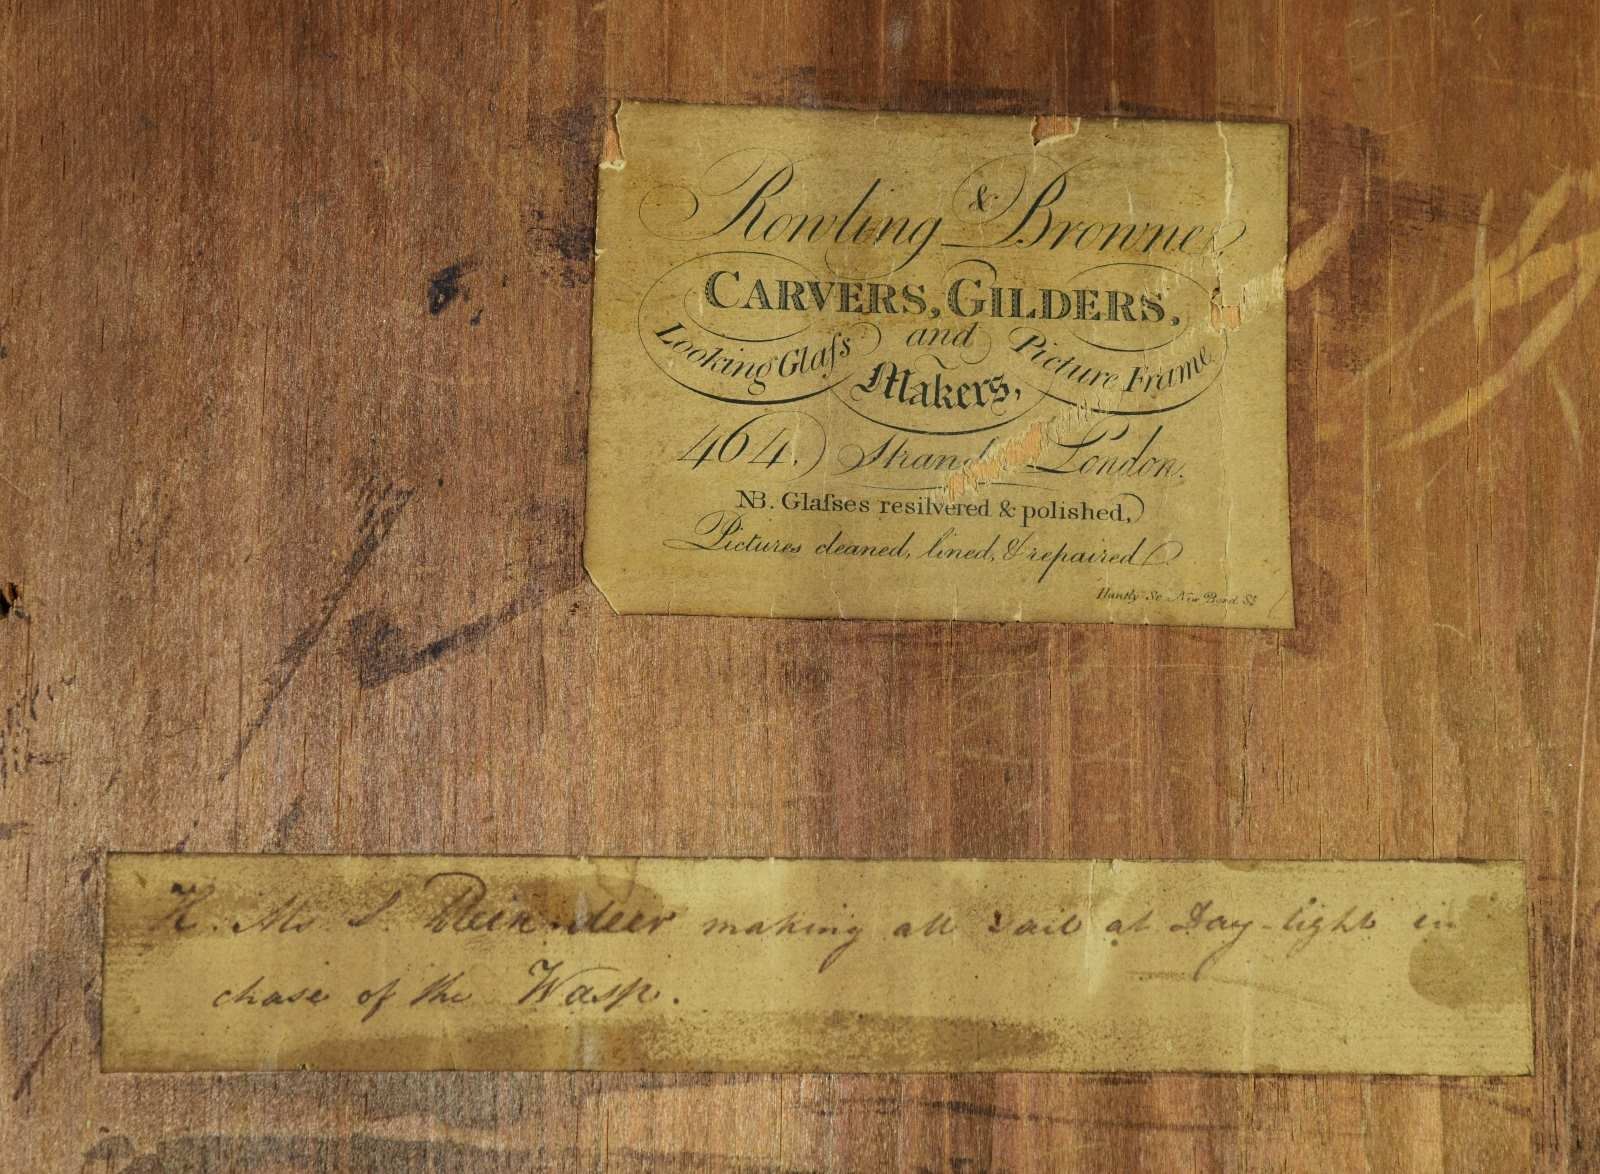 Rowling & Browne,
CARVERS, GILDERS,
Looking Glaſs and Picture Frame
Makers,
464, Strand London.
NB. Glaſses resilvered & polished,
Pictures cleaned, lined, & repaired.
Huntly Sc New Bond St
H. Ms. S. Rein-deer making all sail at Day-light in
chase of the Wasp.